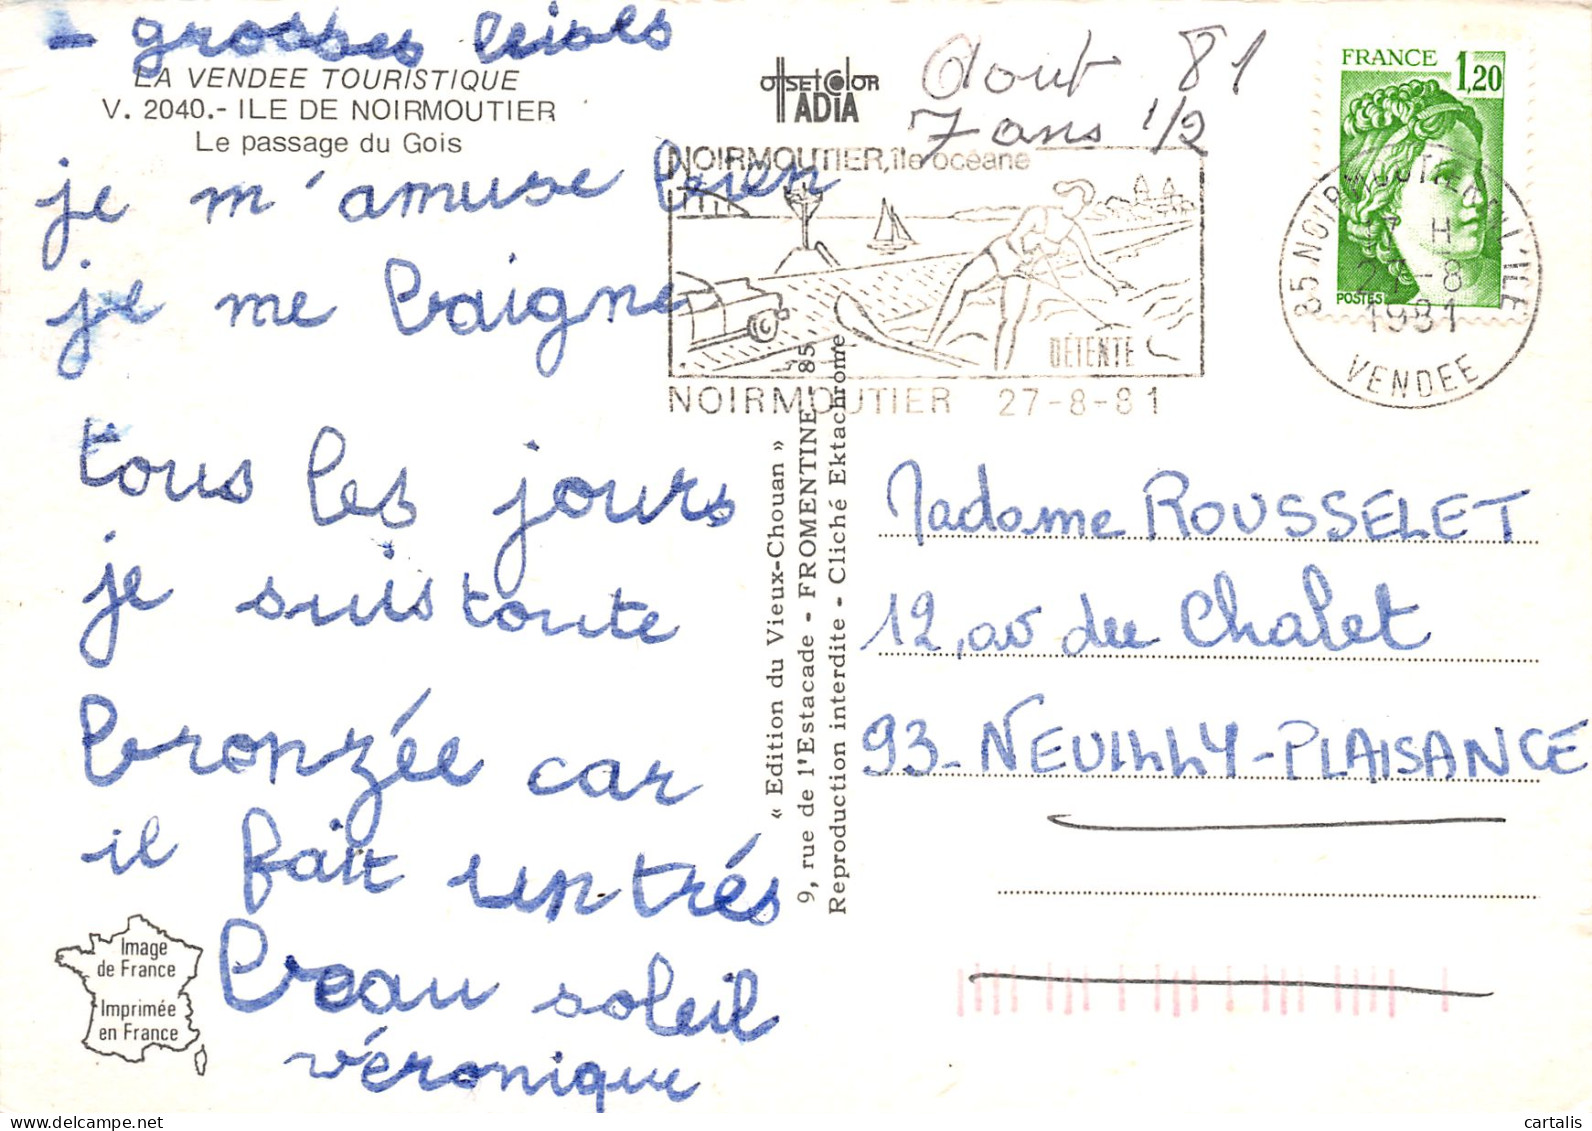 - grosses bises
LA VENDEE TOURISTIQUE
V. 2040.- ILE DE NOIRMOUTIER
Le passage du Gois
je m'amuse bien
je me baigne
tous les jours
je suis toute
bronzée car
il fait un trés
beau soleil
véronique
Image
de France
Imprimée
en France
offset color
IADIA
Août 81
7 ans 1/2
NOIRMOUTIER, île océane
DÉTENTE
NOIRMOUTIER 27-8-81
FRANCE 1,20
POSTES
85 NOIRMOUTIER EN L'ILE
17 H
27-8
1981
VENDEE
« Edition du Vieux-Chouan »
9, rue de l'Estacade - FROMENTINE - 85
Reproduction interdite - Cliché Ektachrome
Madame ROUSSELET
12, av du Chalet
93-NEUILLY-PLAISANCE
cartalis
www.delcampe.net